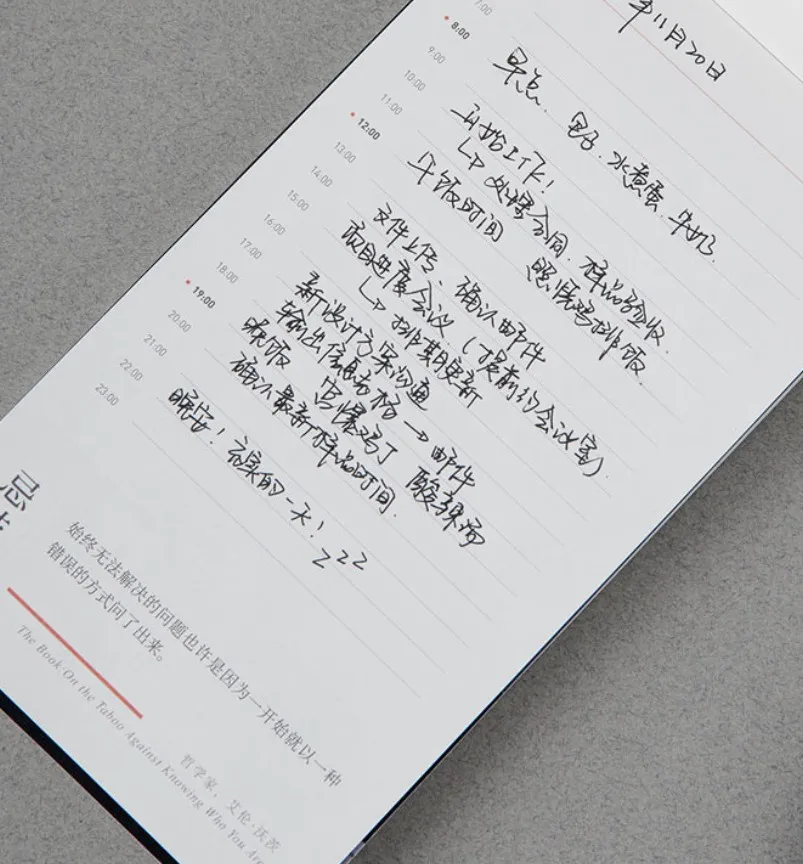 年11月20日
7:00
8:00
早点、面包、水煮蛋、牛奶
9:00
10:00
开始工作！
11:00
↳ 处理合同、样品验收
12:00
午饭时间 照烧鸡排饭
13:00
14:00
文件上传、确认邮件
15:00
项目进度会议（提前约会议室）
16:00
↳ 排期更新
17:00
新设计方案沟通
18:00
输出信息表格 → 邮件
19:00
晚饭 宫爆鸡丁 酸辣汤
20:00
确认最新样品时间
21:00
22:00
23:00
晚安！充实的一天！zzz
忌
始终无法解决的问题也许是因为一开始就以一种
错误的方式问了出来。
The Book:On the Taboo Against Knowing Who You Are
哲学家，艾伦·沃茨